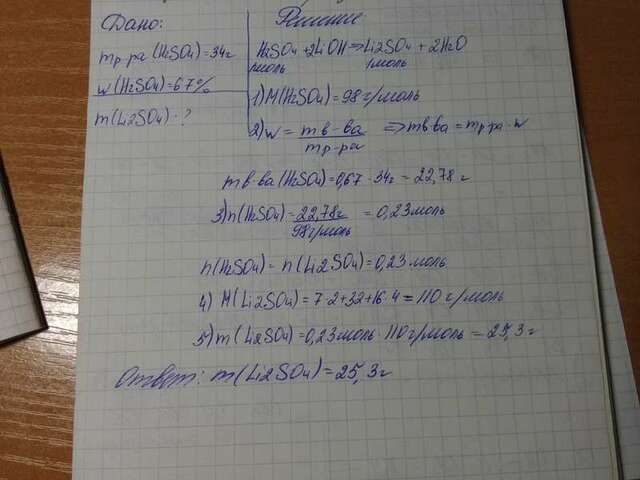 Дано:
mр-ра (H2SO4) = 34г
w (H2SO4) = 67%
m(Li2SO4) - ?
Решение:
H2SO4 + 2LiOH → Li2SO4 + 2H2O
1моль 1моль
1) M(H2SO4) = 98 г/моль
2) w = mв-ва / mр-ра => mв-ва = mр-ра · w
mв-ва (H2SO4) = 0,67 · 34г = 22,78 г
3) n(H2SO4) = 22,78г / 98г/моль = 0,23моль
n(H2SO4) = n(Li2SO4) = 0,23 моль
4) M(Li2SO4) = 7·2+32+16·4 = 110 г/моль
5) m(Li2SO4) = 0,23моль · 110г/моль = 25,3 г
Ответ: m(Li2SO4) = 25,3г